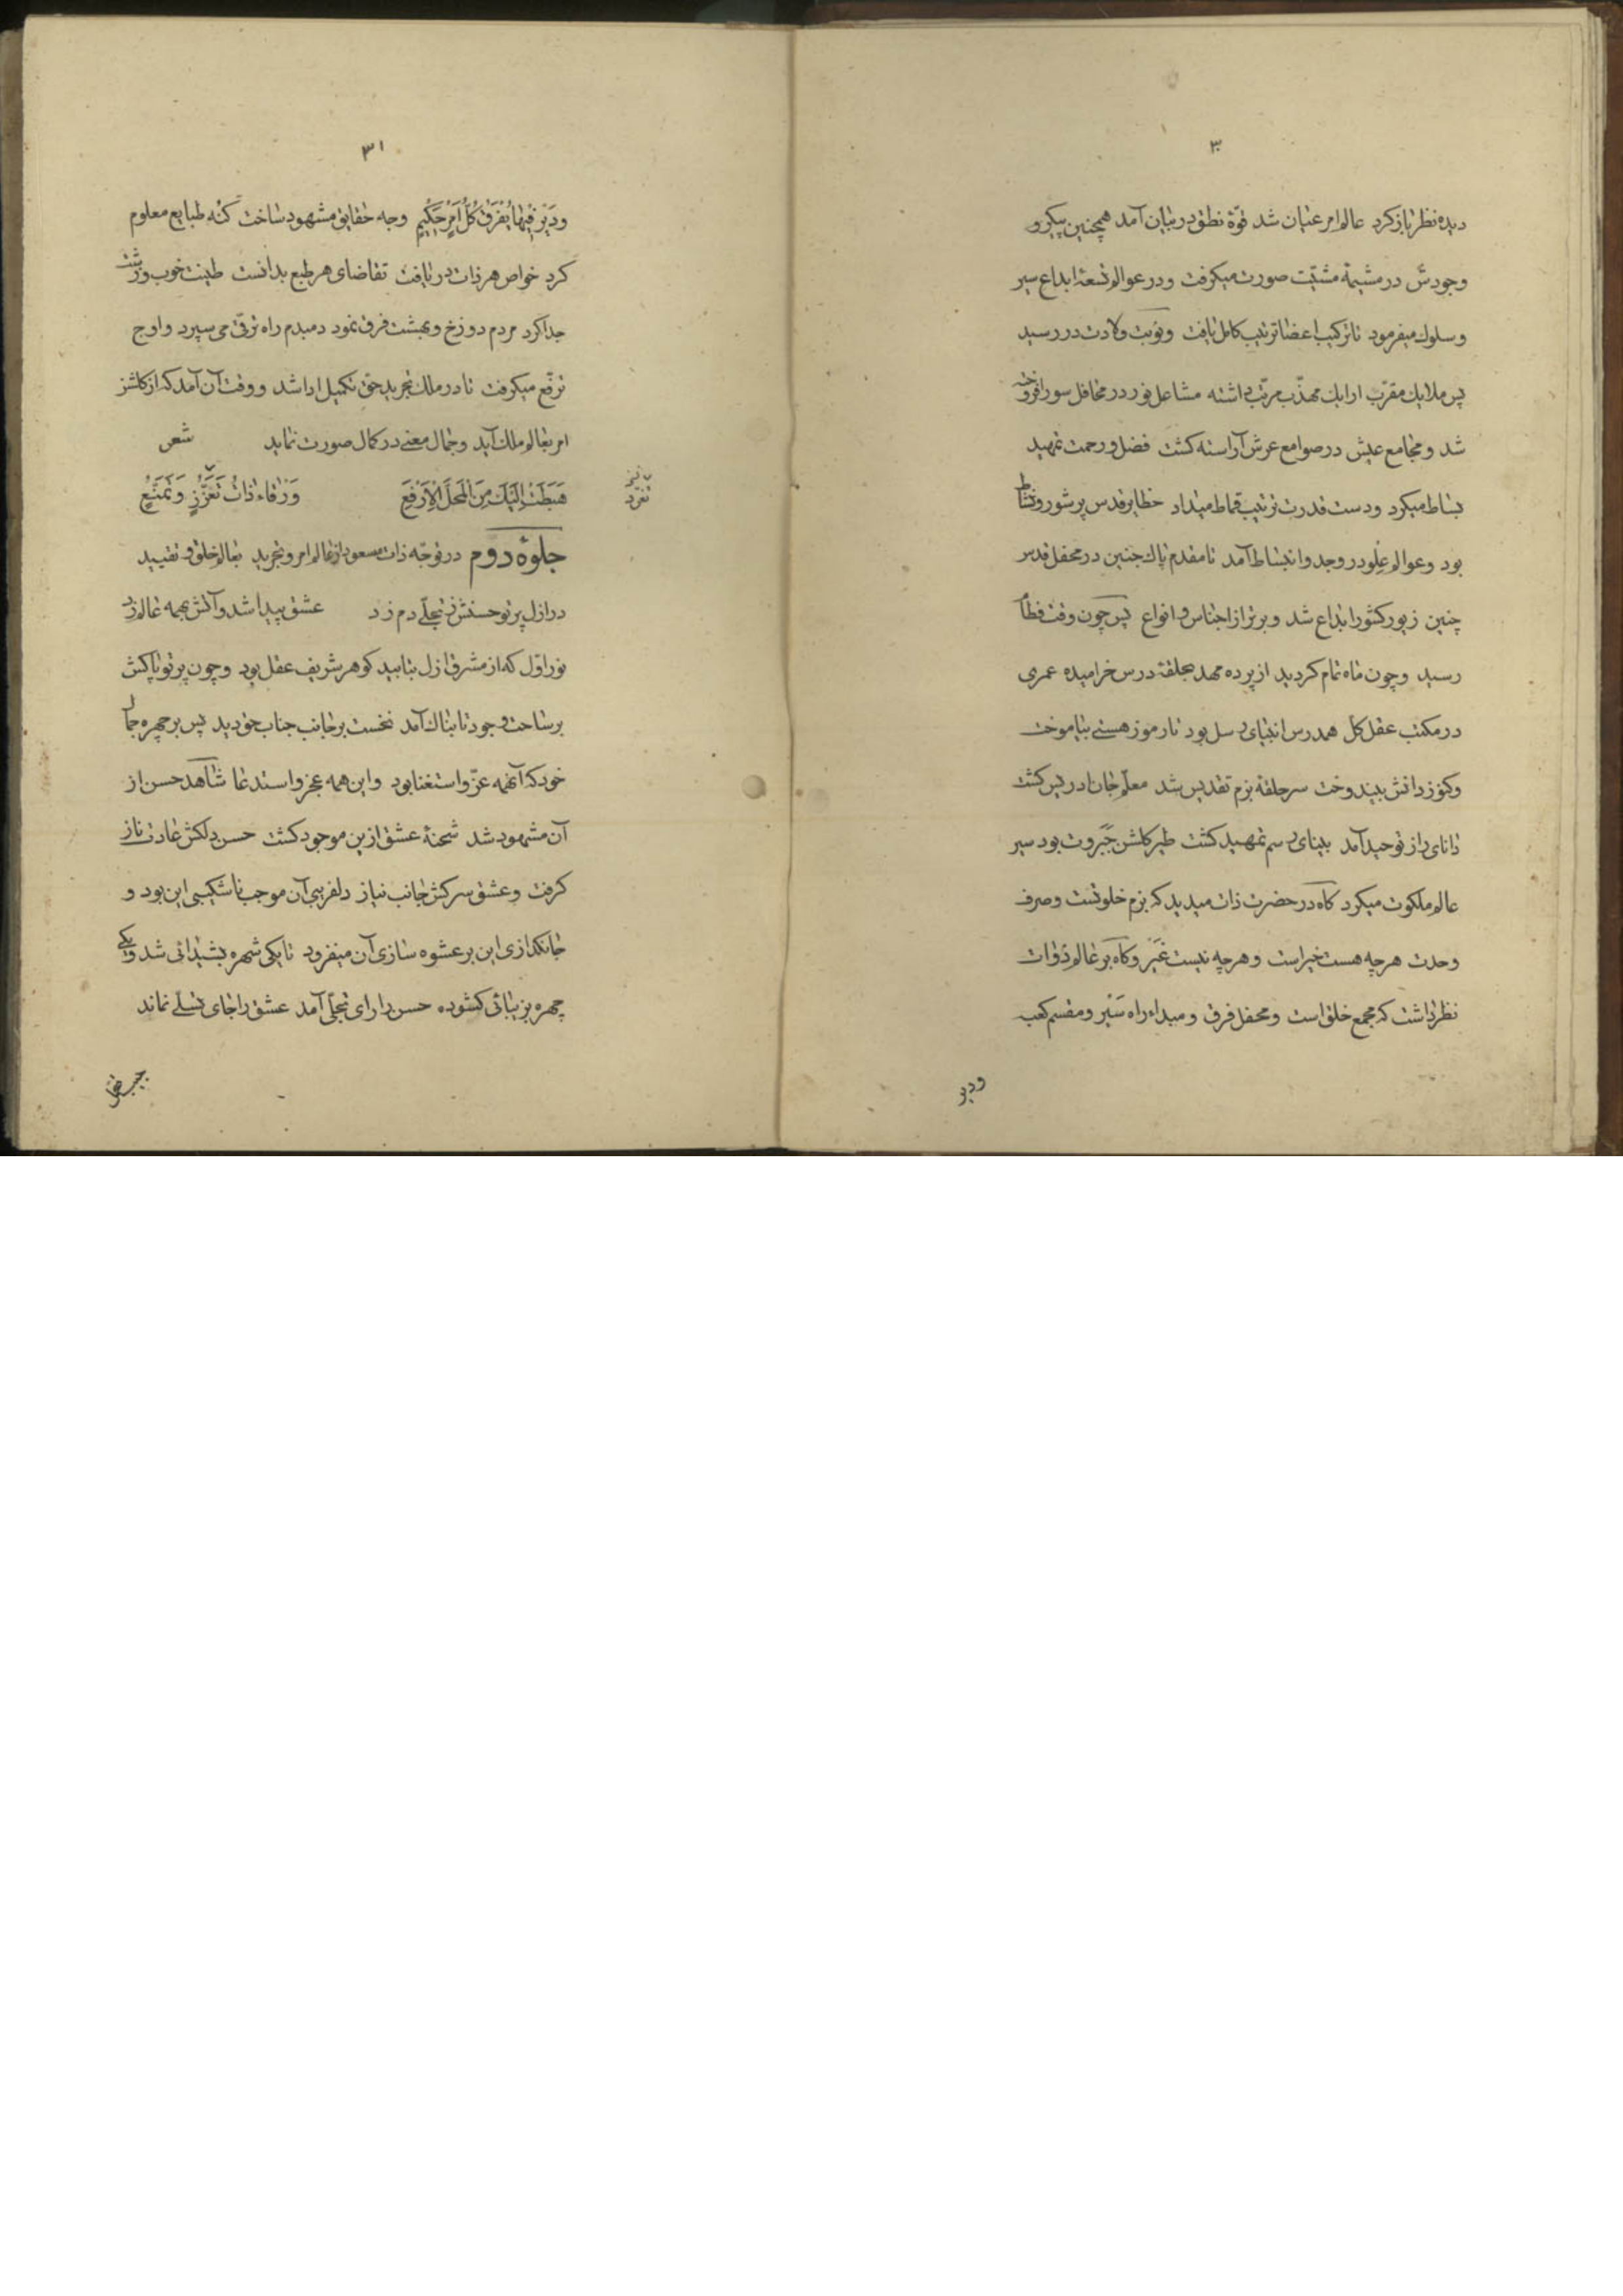 ۳۰
دیده نظر باز کرد عالم امر عنیان شد قوّة نطق در بیان آمد همچنین پیکر و
وجودش در مشیمهٔ مشیّت صورت میکرفت و در عوالم تسعهٔ ابداع سیر
و سلوک میفرمود تا ترکیب اعضا ترتیب کامل یافت و نوبت ولادت در رسید
پس ملایک مقرّب ارایک مهذّب مرتّب داشته مشاعل نور در محافل سور افروخته
شد و مجامع عیش در صوامع عرش آراسته کشت فضل و رحمت تمهید
بساط میکرد و دست قدرت ترتیب قماط میداد خطایر قدس پر شور و نشاط
بود و عوالم علو در وجد و انبساط آمد تا مقدم پاک جنین در محفل قدس
چنین زیور کشور ابداع شد و برتر از اجناس و انواع پس چون وقت فطام
رسید و چون ماه تمام کردید از پرده مهد بحلقهٔ درس خرامیده عمری
در مکتب عقل کل همدرس انبیای رسل بود تا رموز هستی بیاموخت
و کنوز دانش بیندوخت سر حلقهٔ بزم تقدیس شد معلّم جان ادریس کشت
دانای راز توحید آمد بینای رسم تمهید کشت طیر کلشن جبروت بود سیر
عالم ملکوت میکرد کاه در حضرت ذات میدید که بزم خلوتست و صرف
وحدت هرچه هست خیر است و هرچه نیست غیر و کاه بر عالم ذوات
نظر داشت که مجمع خلق است و محفل فرق و مبداء راه سیر و مقسم کعبه
ودیر
۳۱
و دیر فیها یُفرَقُ کُلُّ اَمرٍ حَکیمٍ وجه حقایق مشهود ساخت کنه طبایع معلوم
کرد خواص هر ذات دریافت تقاضای هر طبع بدانست طینت خوب و زشت
جدا کرد مردم دوزخ و بهشت فرق نمود دمبدم راه ترقّی می سپرد و اوج
ترفّع میکرفت تا در ملک تجرید حقّ تکمیل ادا شد و وقت آن آمد که از کلشن
امر بعالم ملک آید و جمال معنی در کمال صورت نماید شعر
هَبَطَت اِلَیکَ مِنَ المَحَلِّ الاَرفَعِ وَرقاءُ ذاتُ تَعَزُّزٍ وَ تَمَنُّعٍ
تفرّد
جلوهٔ دوم در توجّه ذات مسعود از عالم امر و تجرید بعالم خلق و تقیید
در ازل پرتو حسنش ز تجلّی دم زد عشق پیدا شد و آتش بهمه عالم زد
نور اوّل که از مشرق ازل بتابید کوهر شریف عقل بود و چون پرتو پاکش
بر ساحت وجود تابناک آمد نخست بر جانب جناب حق دید پس بر چهره جمال
خود که آنهمه عزّ و استغنا بود و این همه عجز و استدعا شاهد حسن از
آن مشهود شد شحنهٔ عشق از این موجود کشت حسن دلکش عادت ناز
کرفت و عشق سرکش جانب نیاز دلفریبی آن موجب ناشکیبی این بود و
جانکدازی این بر عشوه سازی آن میفزود تا یکی شهره بشیدائی شد و یکی
چهره بزیبائی کشوده حسن را رای تجلّی آمد عشق را جای تسلّی نماند